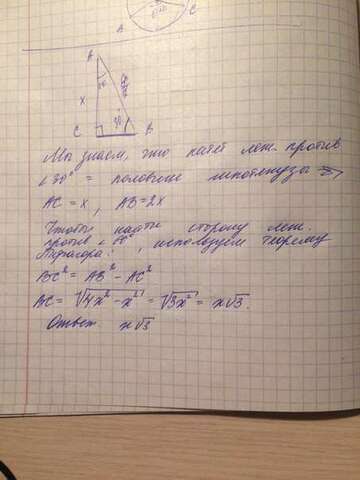 A
C
A
x
C
B
Мы знаем, что катет леж. против
∠30° = половине гипотенузы ⇒
AC = x, AB = 2x
Чтобы найти сторону леж.
против ∠, используем теорему
Пифагора:
BC² = AB² − AC²
BC = √4x² − x² = √3x² = x√3.
Ответ x√3